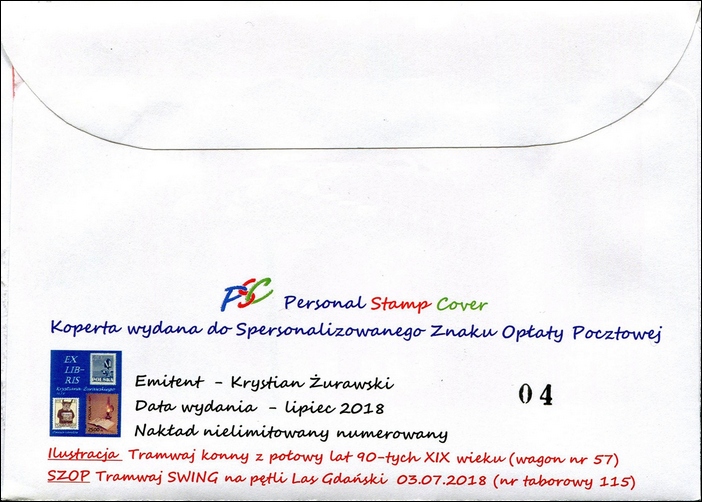 PSC Personal Stamp Cover
Koperta wydana do Spersonalizowanego Znaku Opłaty Pocztowej
EX
LIB-
RIS
Krystiana Żurawskiego
POLSKA
Emitent - Krystian Żurawski
Data wydania - lipiec 2018
Nakład nielimitowany numerowany
04
Ilustracja Tramwaj konny z połowy lat 90-tych XIX wieku (wagon nr 57)
SZOP Tramwaj SWING na pętli Las Gdański 03.07.2018 (nr taborowy 115)